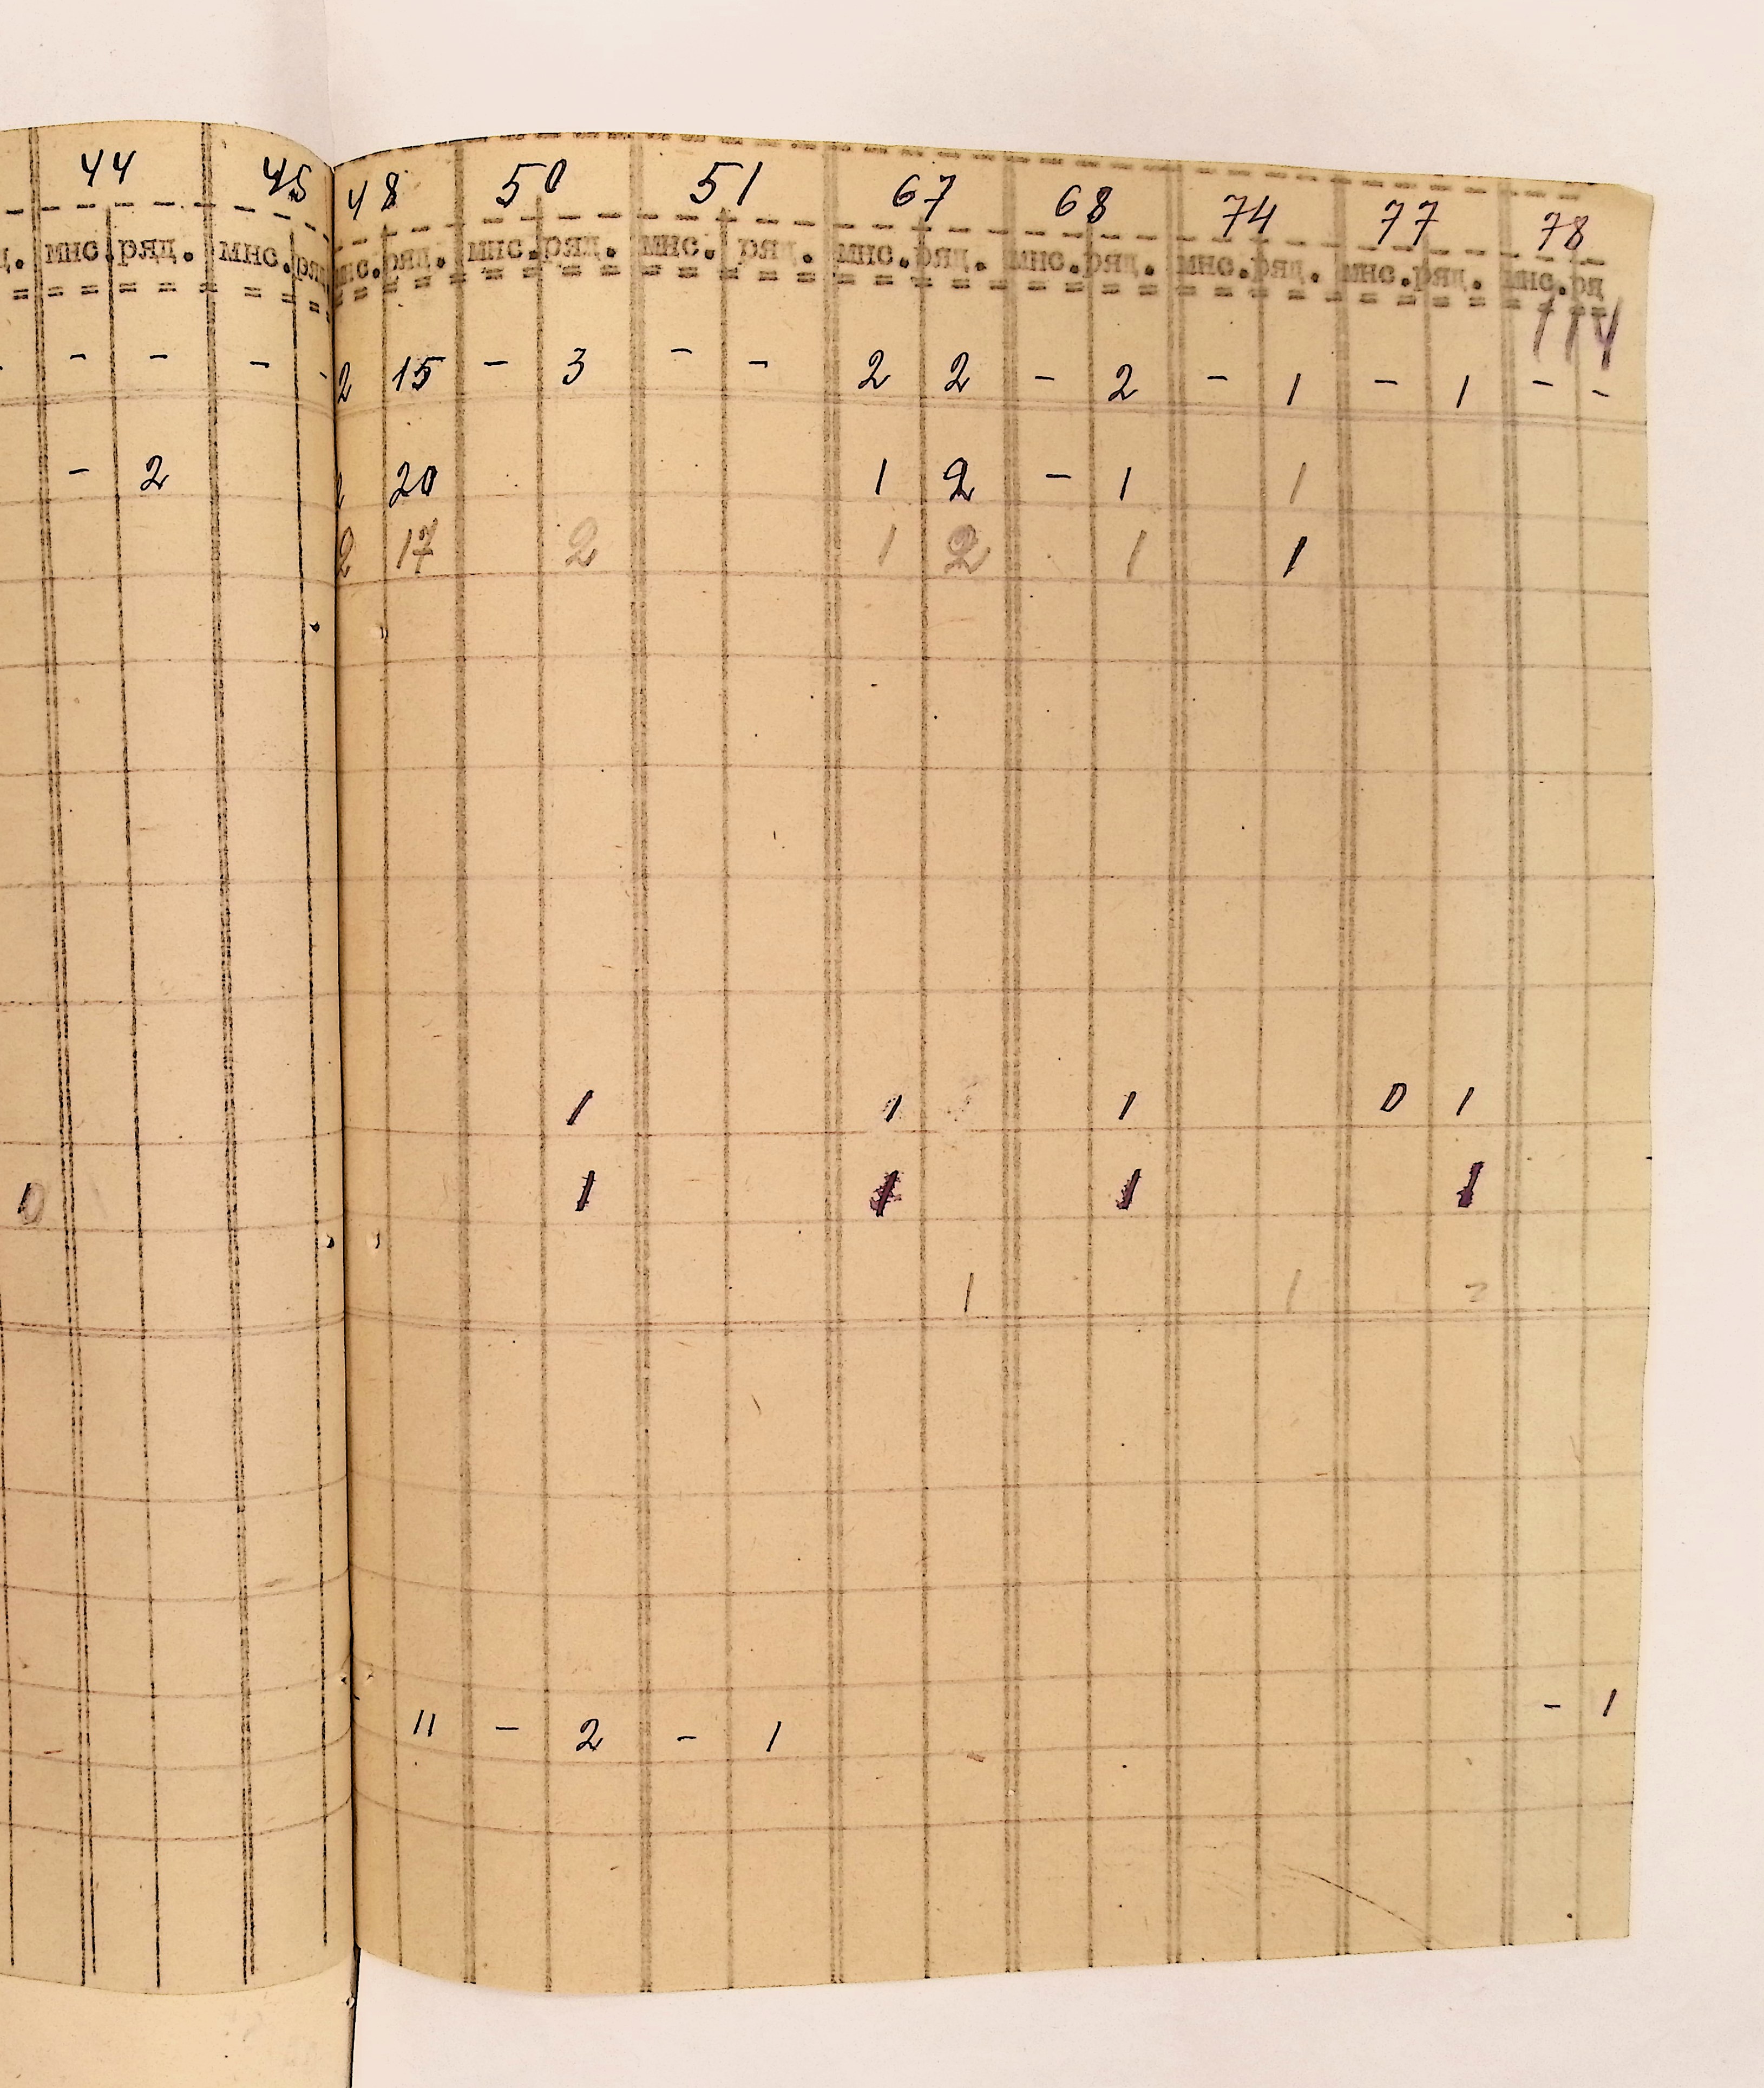 44 45 48 50 51 67 68 74 77 78
мнс. ряд. мнс. ряд. мнс. ряд. мнс. ряд. мнс. ряд. мнс. ряд. мнс. ряд. мнс. ряд. мнс. ряд. мнс. ряд
114
- - - 2 15 - 3 - - 2 2 - 2 - 1 - 1 - -
- 2 20 1 2 - 1 1
2 17 2 1 2 1 1
1 1 1 0 1
1 1 1 1
1 1 2
11 - 2 - 1 - 1